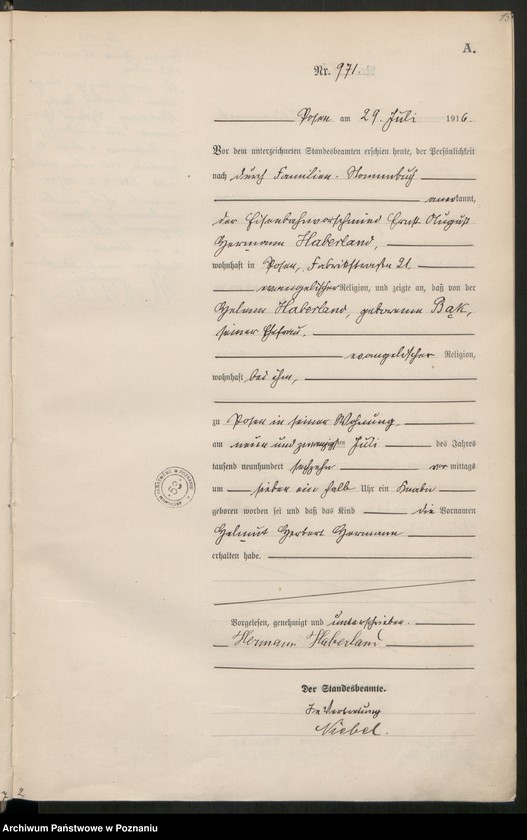 A.
Nr. 971.
Posen am 29. Juli 1916.
Vor dem unterzeichneten Standesbeamten erschien heute, der Persönlichkeit
nach durch Familien-Stammbuch
anerkannt,
der Eisenbahnvorschmied Ernst August
Hermann Haberland,
wohnhaft in Posen, Fabrikstraße 21
evangelischer Religion, und zeigte an, daß von der
Helene Haberland, geborene Bąk,
seiner Ehefrau.
evangelischer Religion,
wohnhaft bei ihm,
zu Posen in seiner Wohnung
am neun und zwanzigsten Juli des Jahres
tausend neunhundert sechzehn vor mittags
um sieben ein halb Uhr ein Knabe
geboren worden sei und daß das Kind die Vornamen
Helmut Herbert Hermann
erhalten habe.
Vorgelesen, genehmigt und unterschrieben.
Hermann Haberland
Der Standesbeamte.
In Vertretung
Niebel.
Archiwum Państwowe w Poznaniu